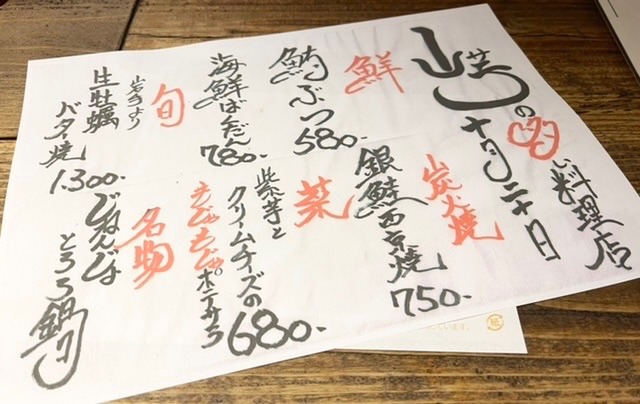 芋の多い料理店
十月二十日
鮮
鮪ぶつ
580-
海鮮ばくだん
780-
旬
岩手より
生牡蠣
バター焼
1.300-
炭火焼
銀鮭西京焼
750-
菜
紫芋と
クリームチーズの
もじゃもじゃポテサラ
680-
名物
じねんじょ
とろろ鍋